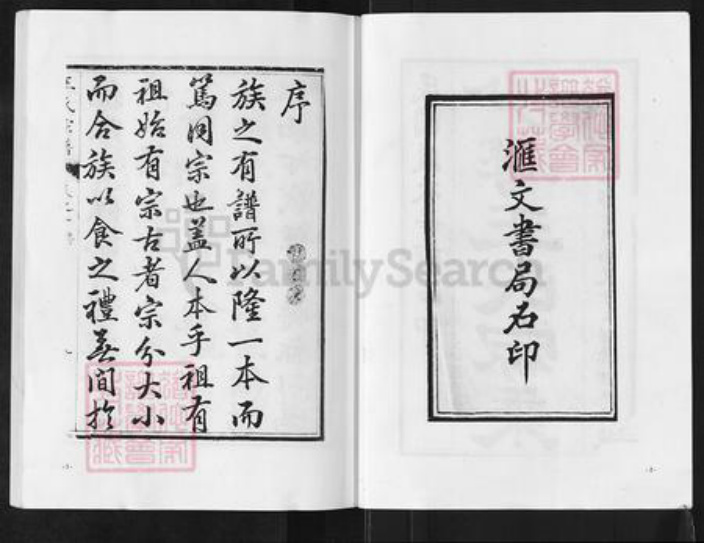 滙文書局石印
序
族之有譜所以隆一本而
篤同宗也蓋人本乎祖有
祖始有宗古者宗分大小
而合族以食之禮無間於
FamilySearch